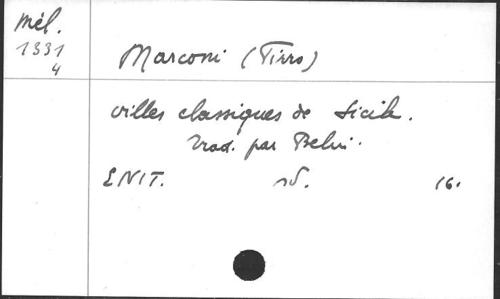 Mél.
1331
4
Marconi (Pirro)
villes classiques de Sicile.
Trad. par Belui.
ENIT. sd. 16.